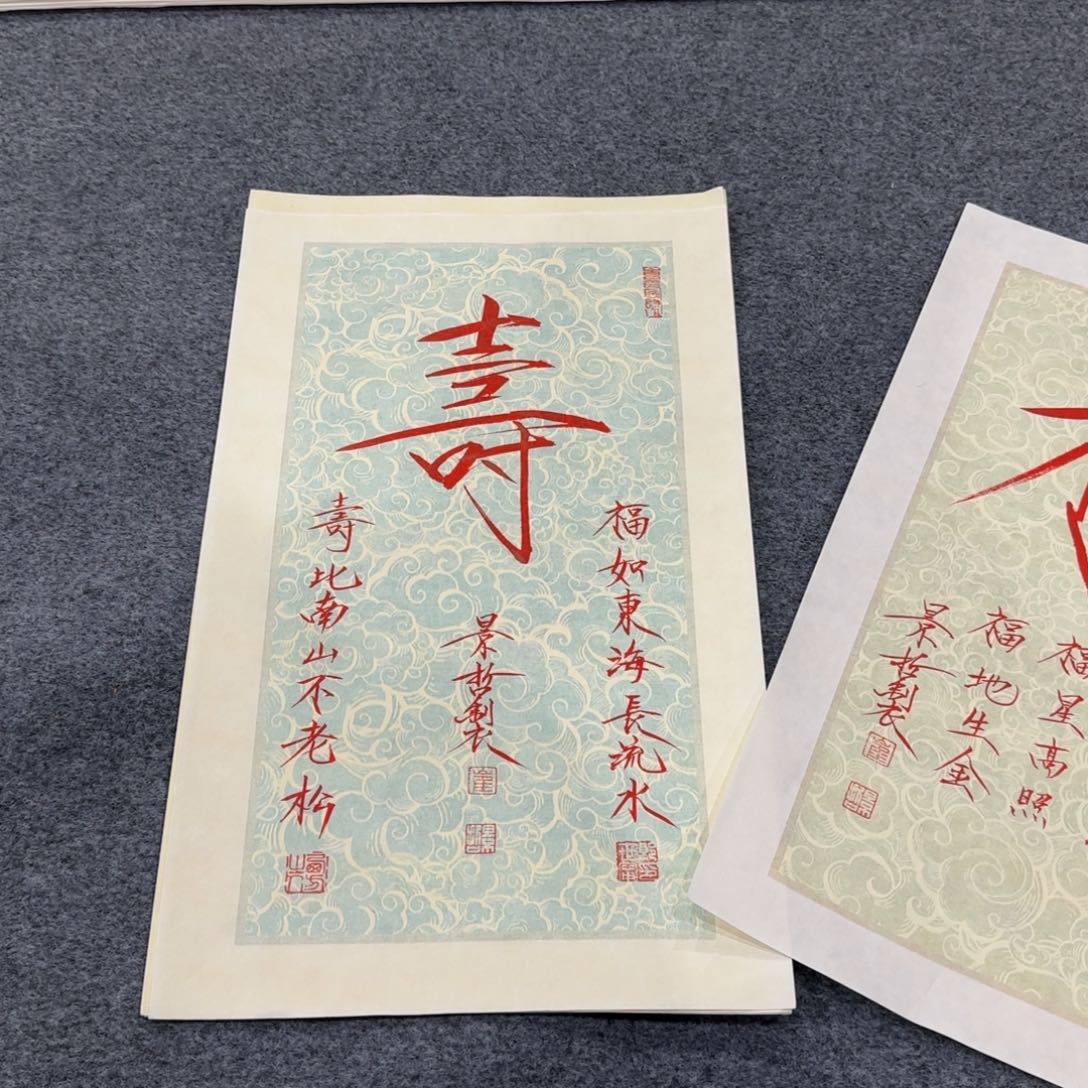 壽
福如東海長流水
景哲製
壽比南山不老松
福星高照
福地生金
景哲製